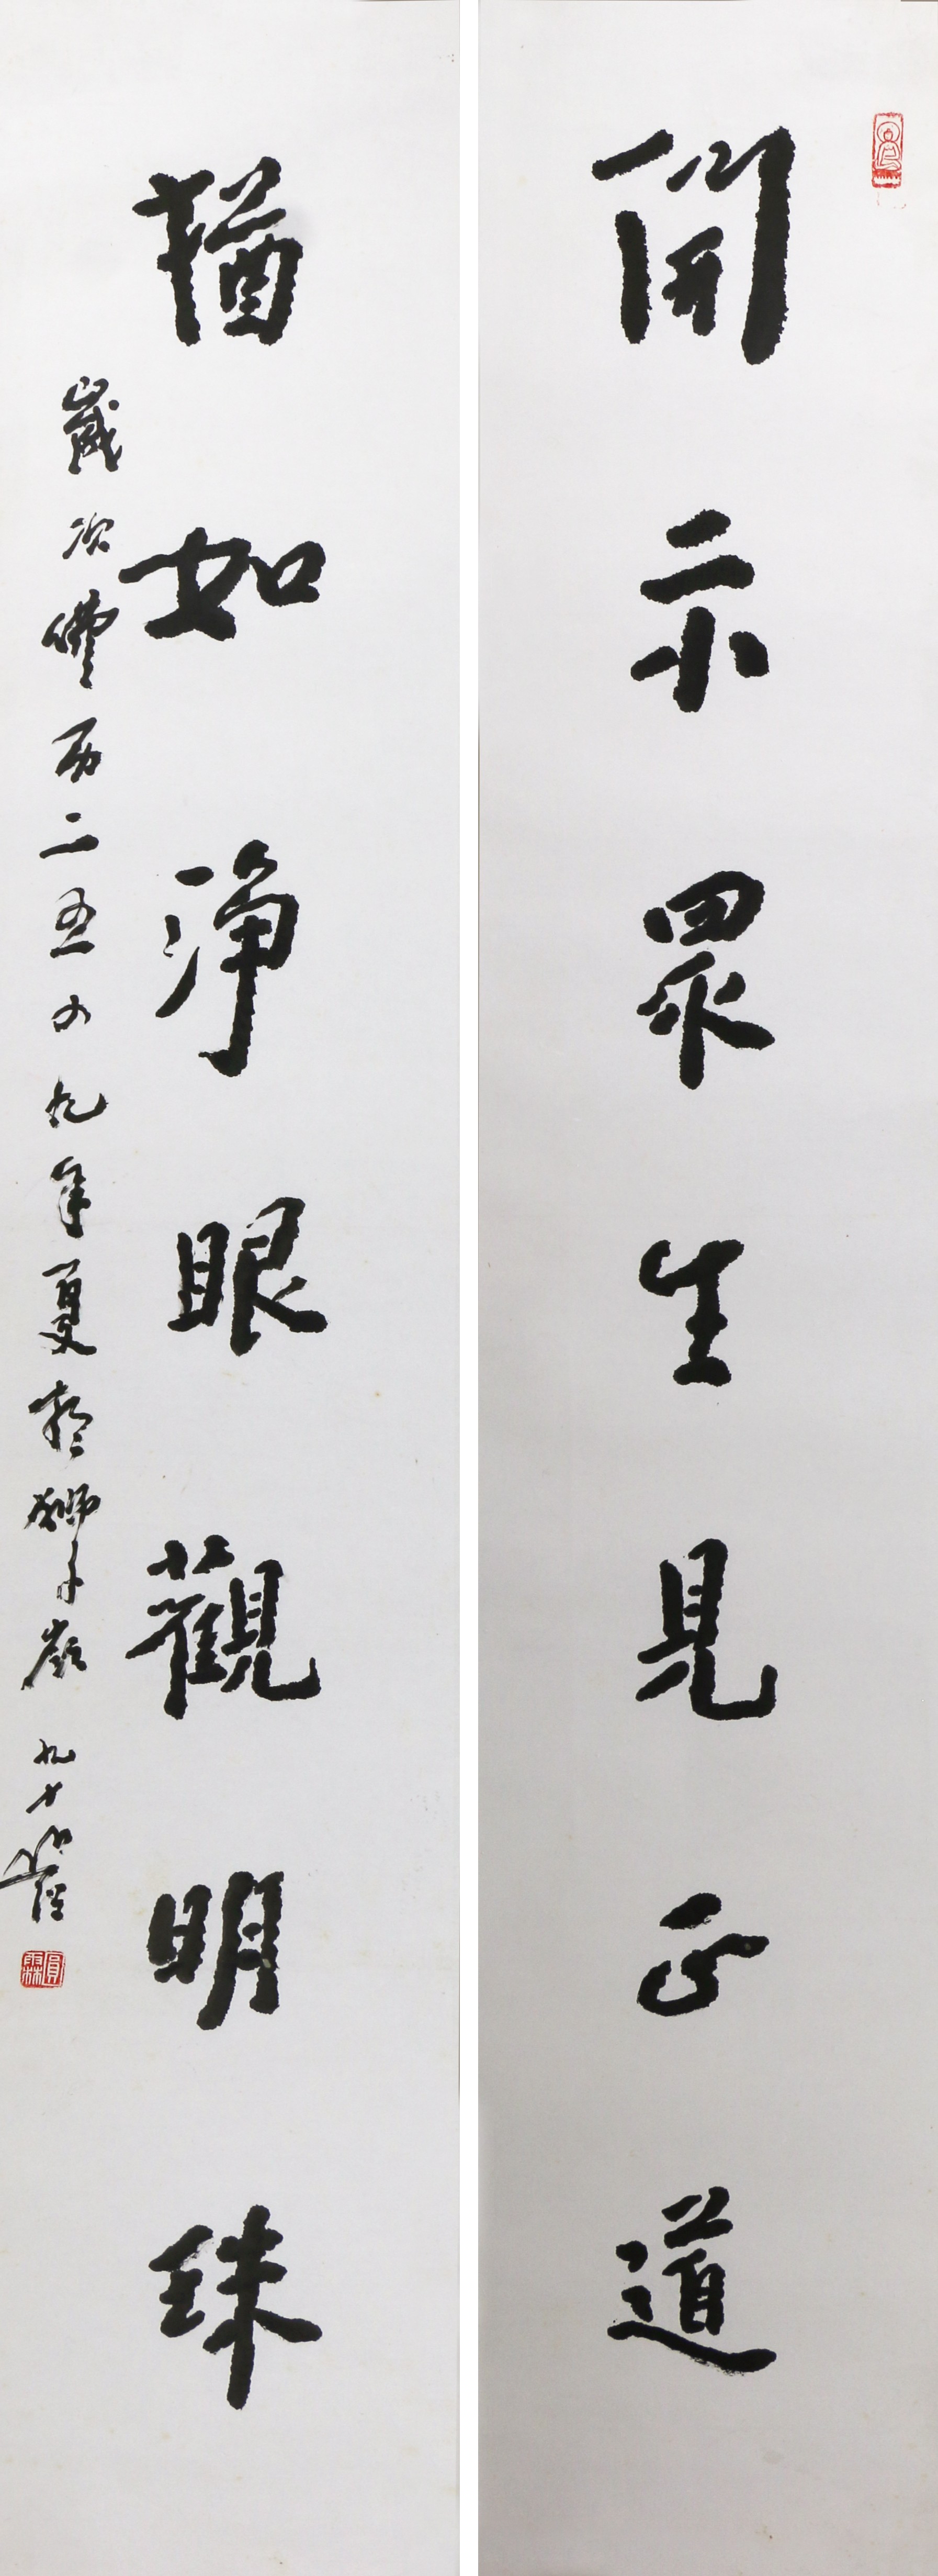 開示眾生見正道
猶如淨眼觀明珠
歲次佛曆二五四九年夏於獅子嶺 九十叟
圓霖